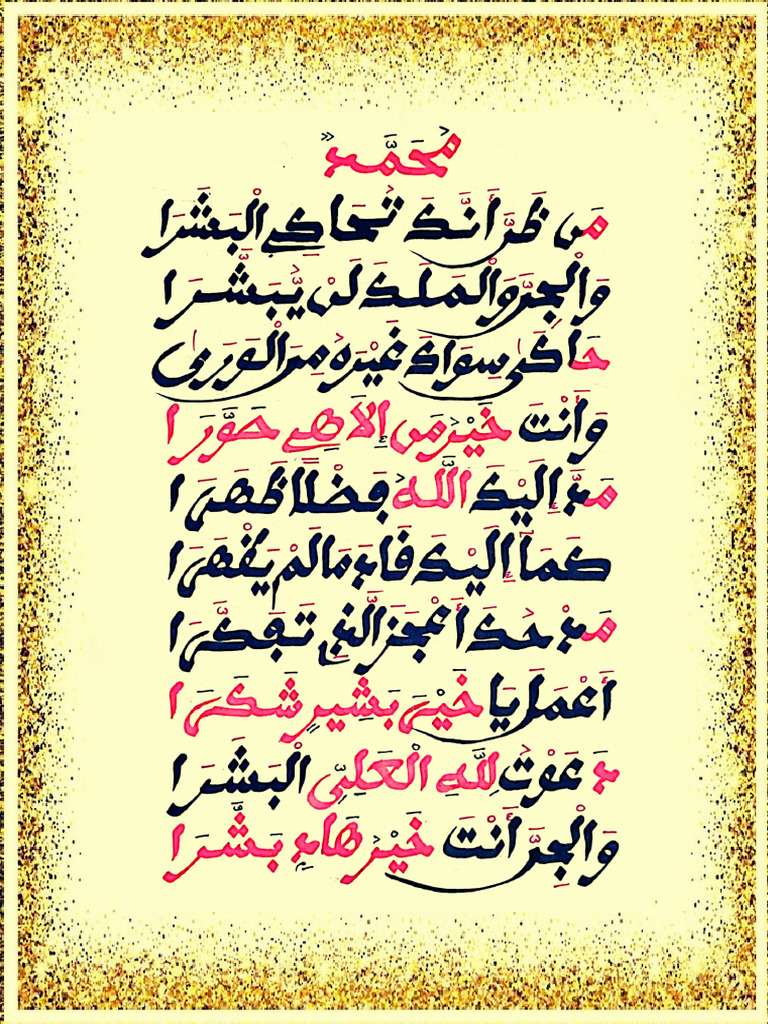 مُحَمَّدٌ
مَن ظَنَّ أَنَّكَ تُحَاكِي الْبَشَرَا
وَالْجِنَّ وَالْمَلَكَ لَنْ يُّبَشَّرَا
حَاكَىٰ سِوَاكَ غَيْرَهُ مِنَ الْوَرَىٰ
وَأَنْتَ خَيْرُ مَن إِلَاهِي صَوَّرَا
مَدَّ إِلَيْكَ اللَّهُ فَضْلًا ظَهَرَا
كَمَآ إِلَيْكَ قَادَ مَا لَمْ يُقْهَرَا
مَدْحُكَ أَعْجَزَ الَّذِي تَفَكَّرَا
أَعْمَلَ يَا خَيْرَ بَشِيرٍ شَكَرَا
دَعَوْتَ لِلَّهِ الْعَلِيِّ الْبَشَرَا
وَالْجِنَّ أَنْتَ خَيْرُ هَادٍ بَشَّرَا